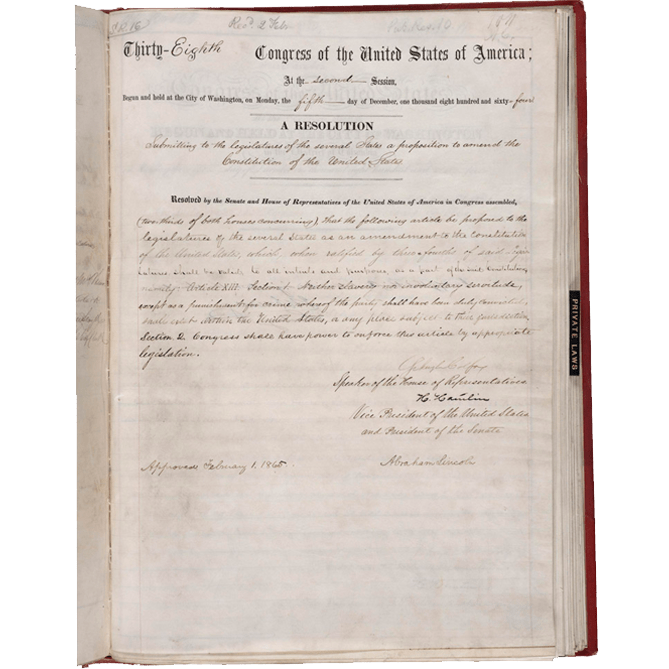 S.R. 16
Rec'd. 2 Feb.
Thirty-Eighth Congress of the United States of America;
At the second Session,
Begun and held at the City of Washington, on Monday, the fifth day of December, one thousand eight hundred and sixty-four
A RESOLUTION
Submitting to the legislatures of the several States a proposition to amend the
Constitution of the United States.
Resolved by the Senate and House of Representatives of the United States of America in Congress assembled,
(two-thirds of both houses concurring), that the following article be proposed to the
legislatures of the several States as an amendment to the Constitution
of the United States, which, when ratified by three-fourths of said Legis-
latures, shall be valid, to all intents and purposes, as a part of the said Constitution,
namely: Article XIII. Section 1. Neither slavery nor involuntary servitude,
except as a punishment for crime whereof the party shall have been duly convicted,
shall exist within the United States, or any place subject to their jurisdiction.
Section 2. Congress shall have power to enforce this article by appropriate
legislation.
Schuyler Colfax
Speaker of the House of Representatives
H. Hamlin
Vice President of the United States
and President of the Senate
Approved, February 1, 1865.
Abraham Lincoln
PRIVATE LAWS